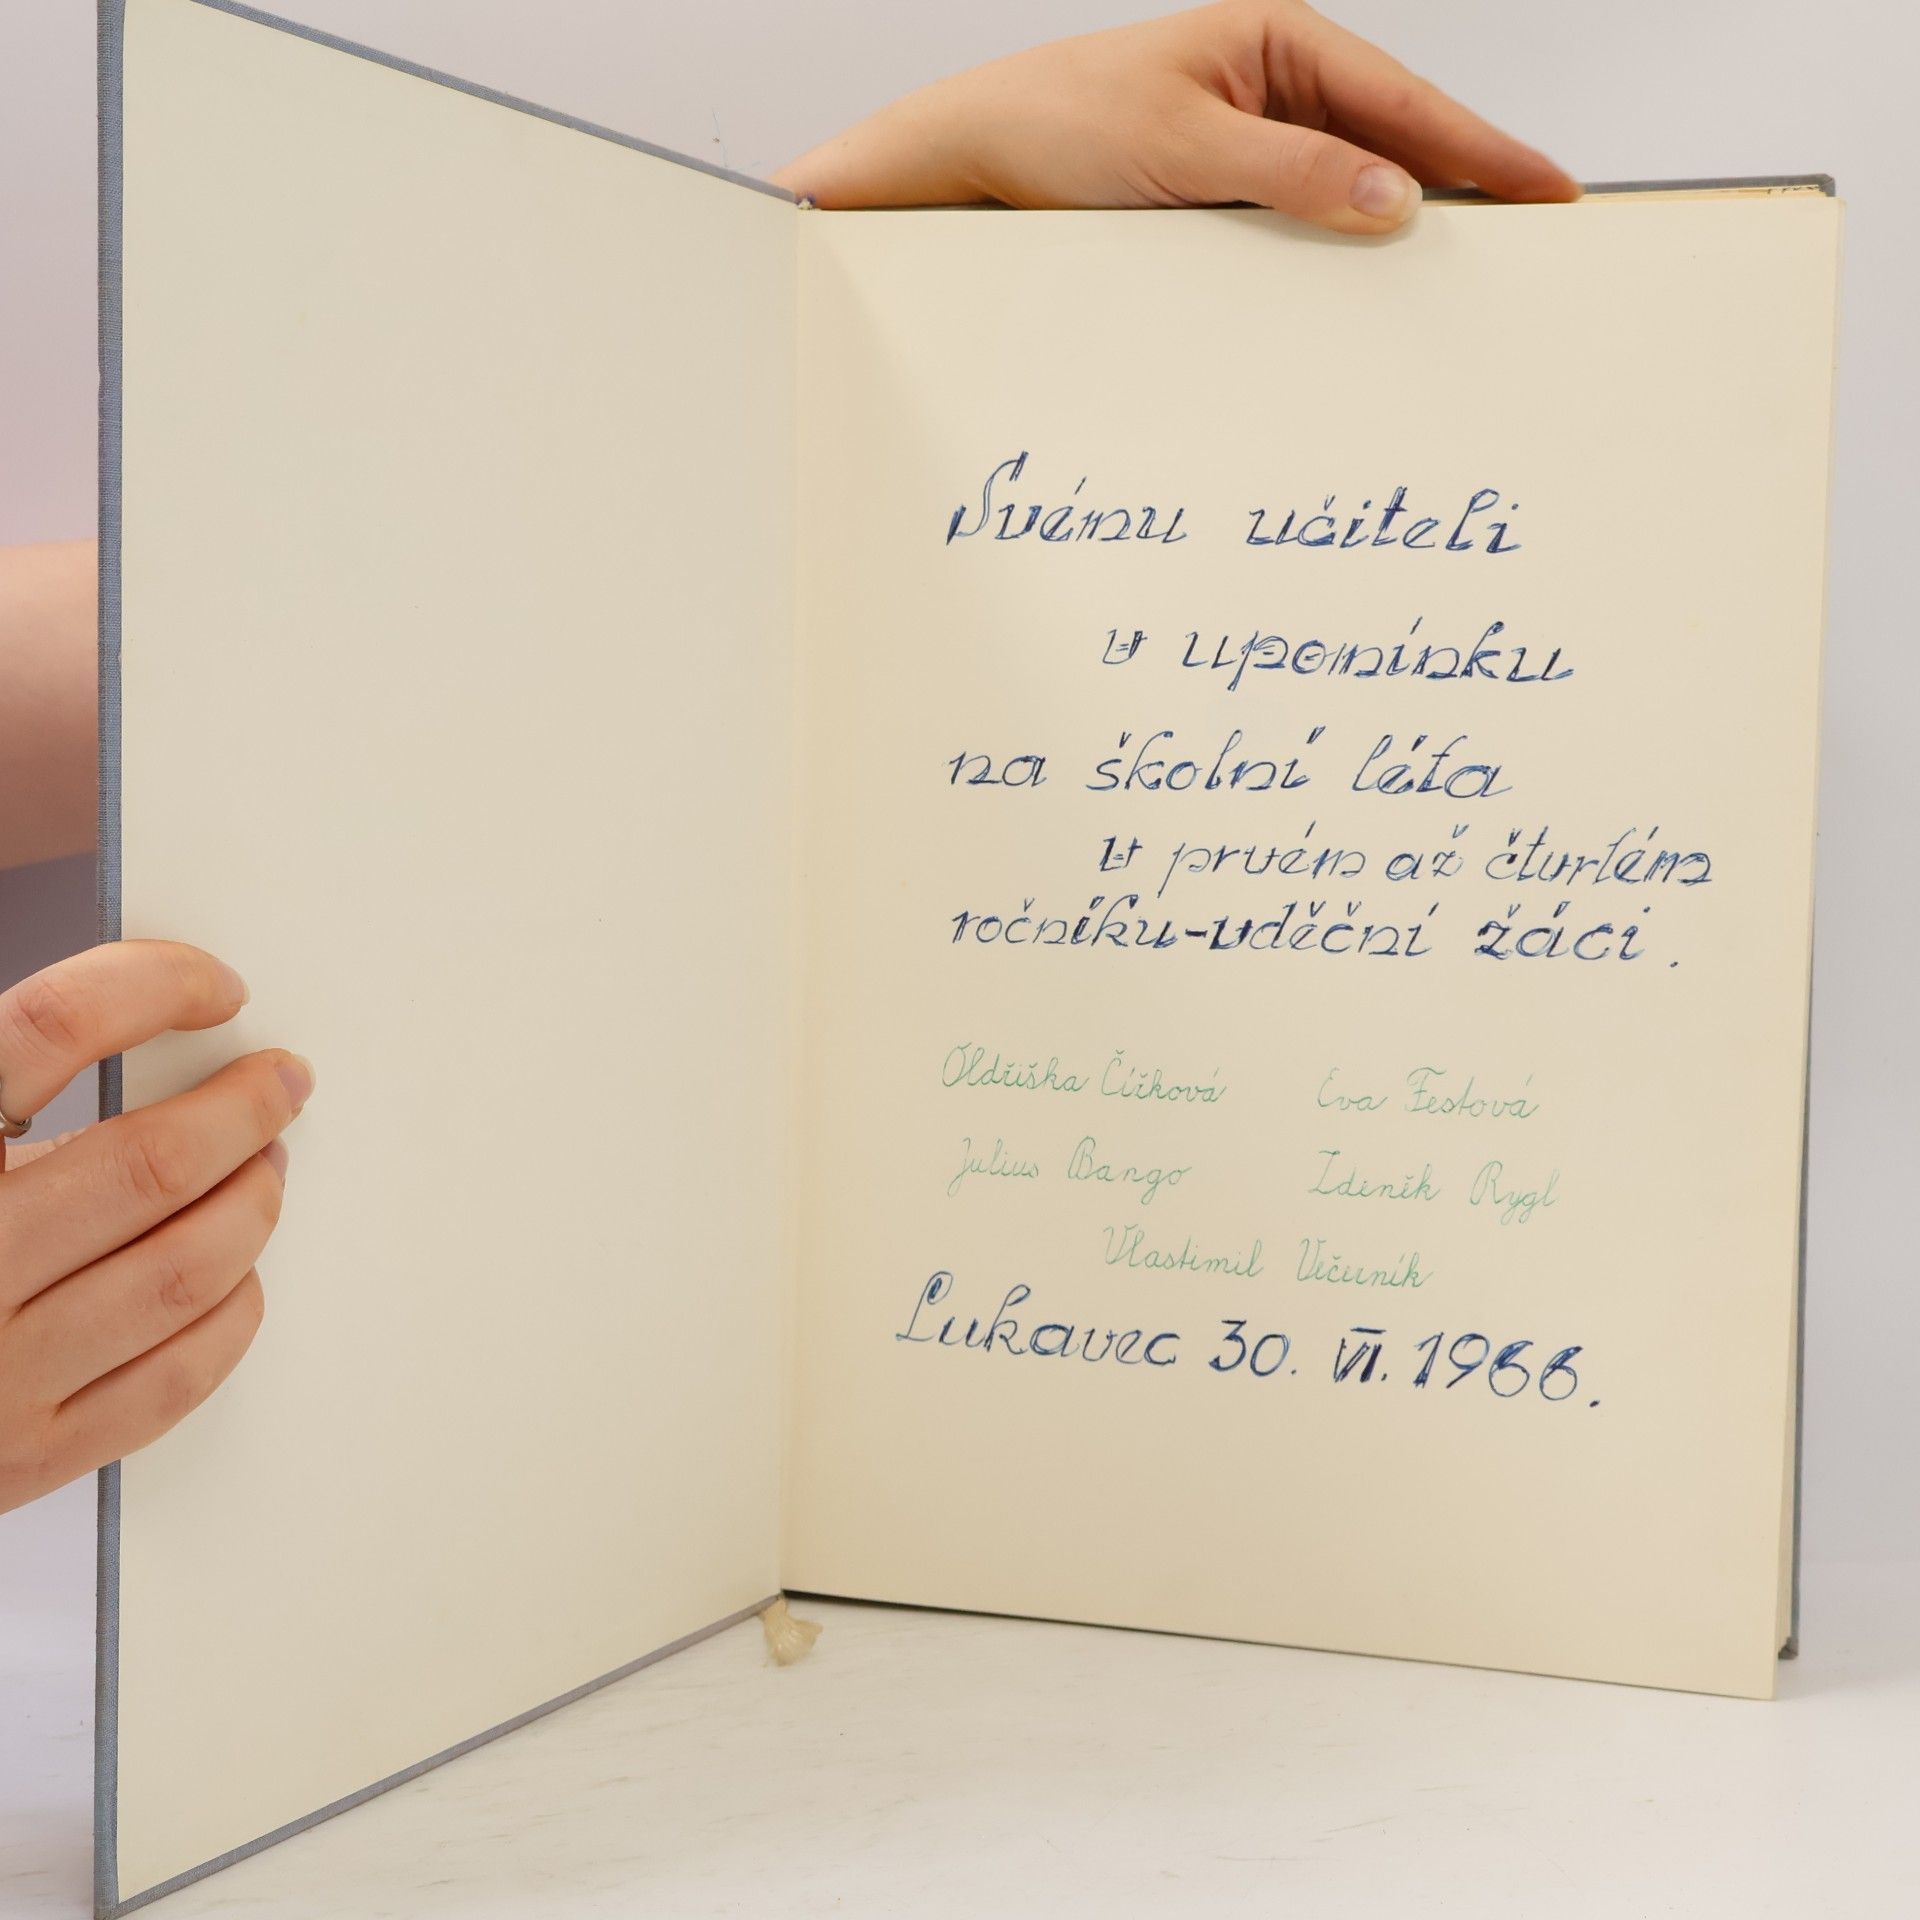 Svému učiteli
v upomínku
na školní léta
v prvém až čtvrtém
ročníku-vděční žáci.
Oldřiška Čížková Eva Festová
Julius Bango Zdeněk Rygl
Vlastimil
Lukavec 30. VI. 1966.